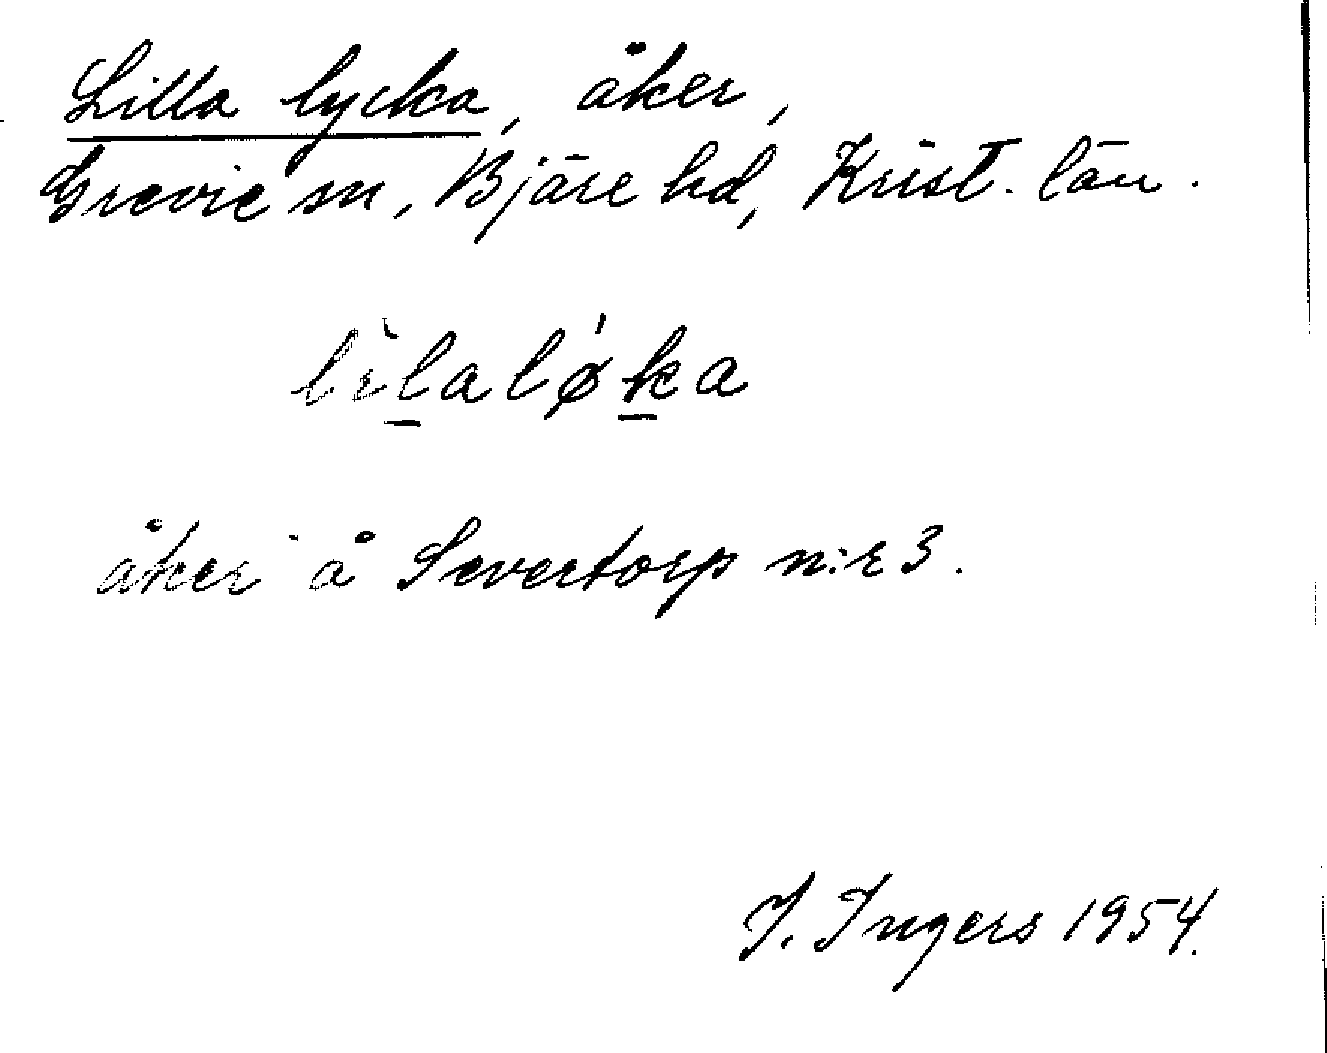 Lilla lycka, åker,
Grevie sn, Bjäre hd, Krist. län.
lìlalǿka
åker å Severtorp n:r 3.
I. Ingers 1954.